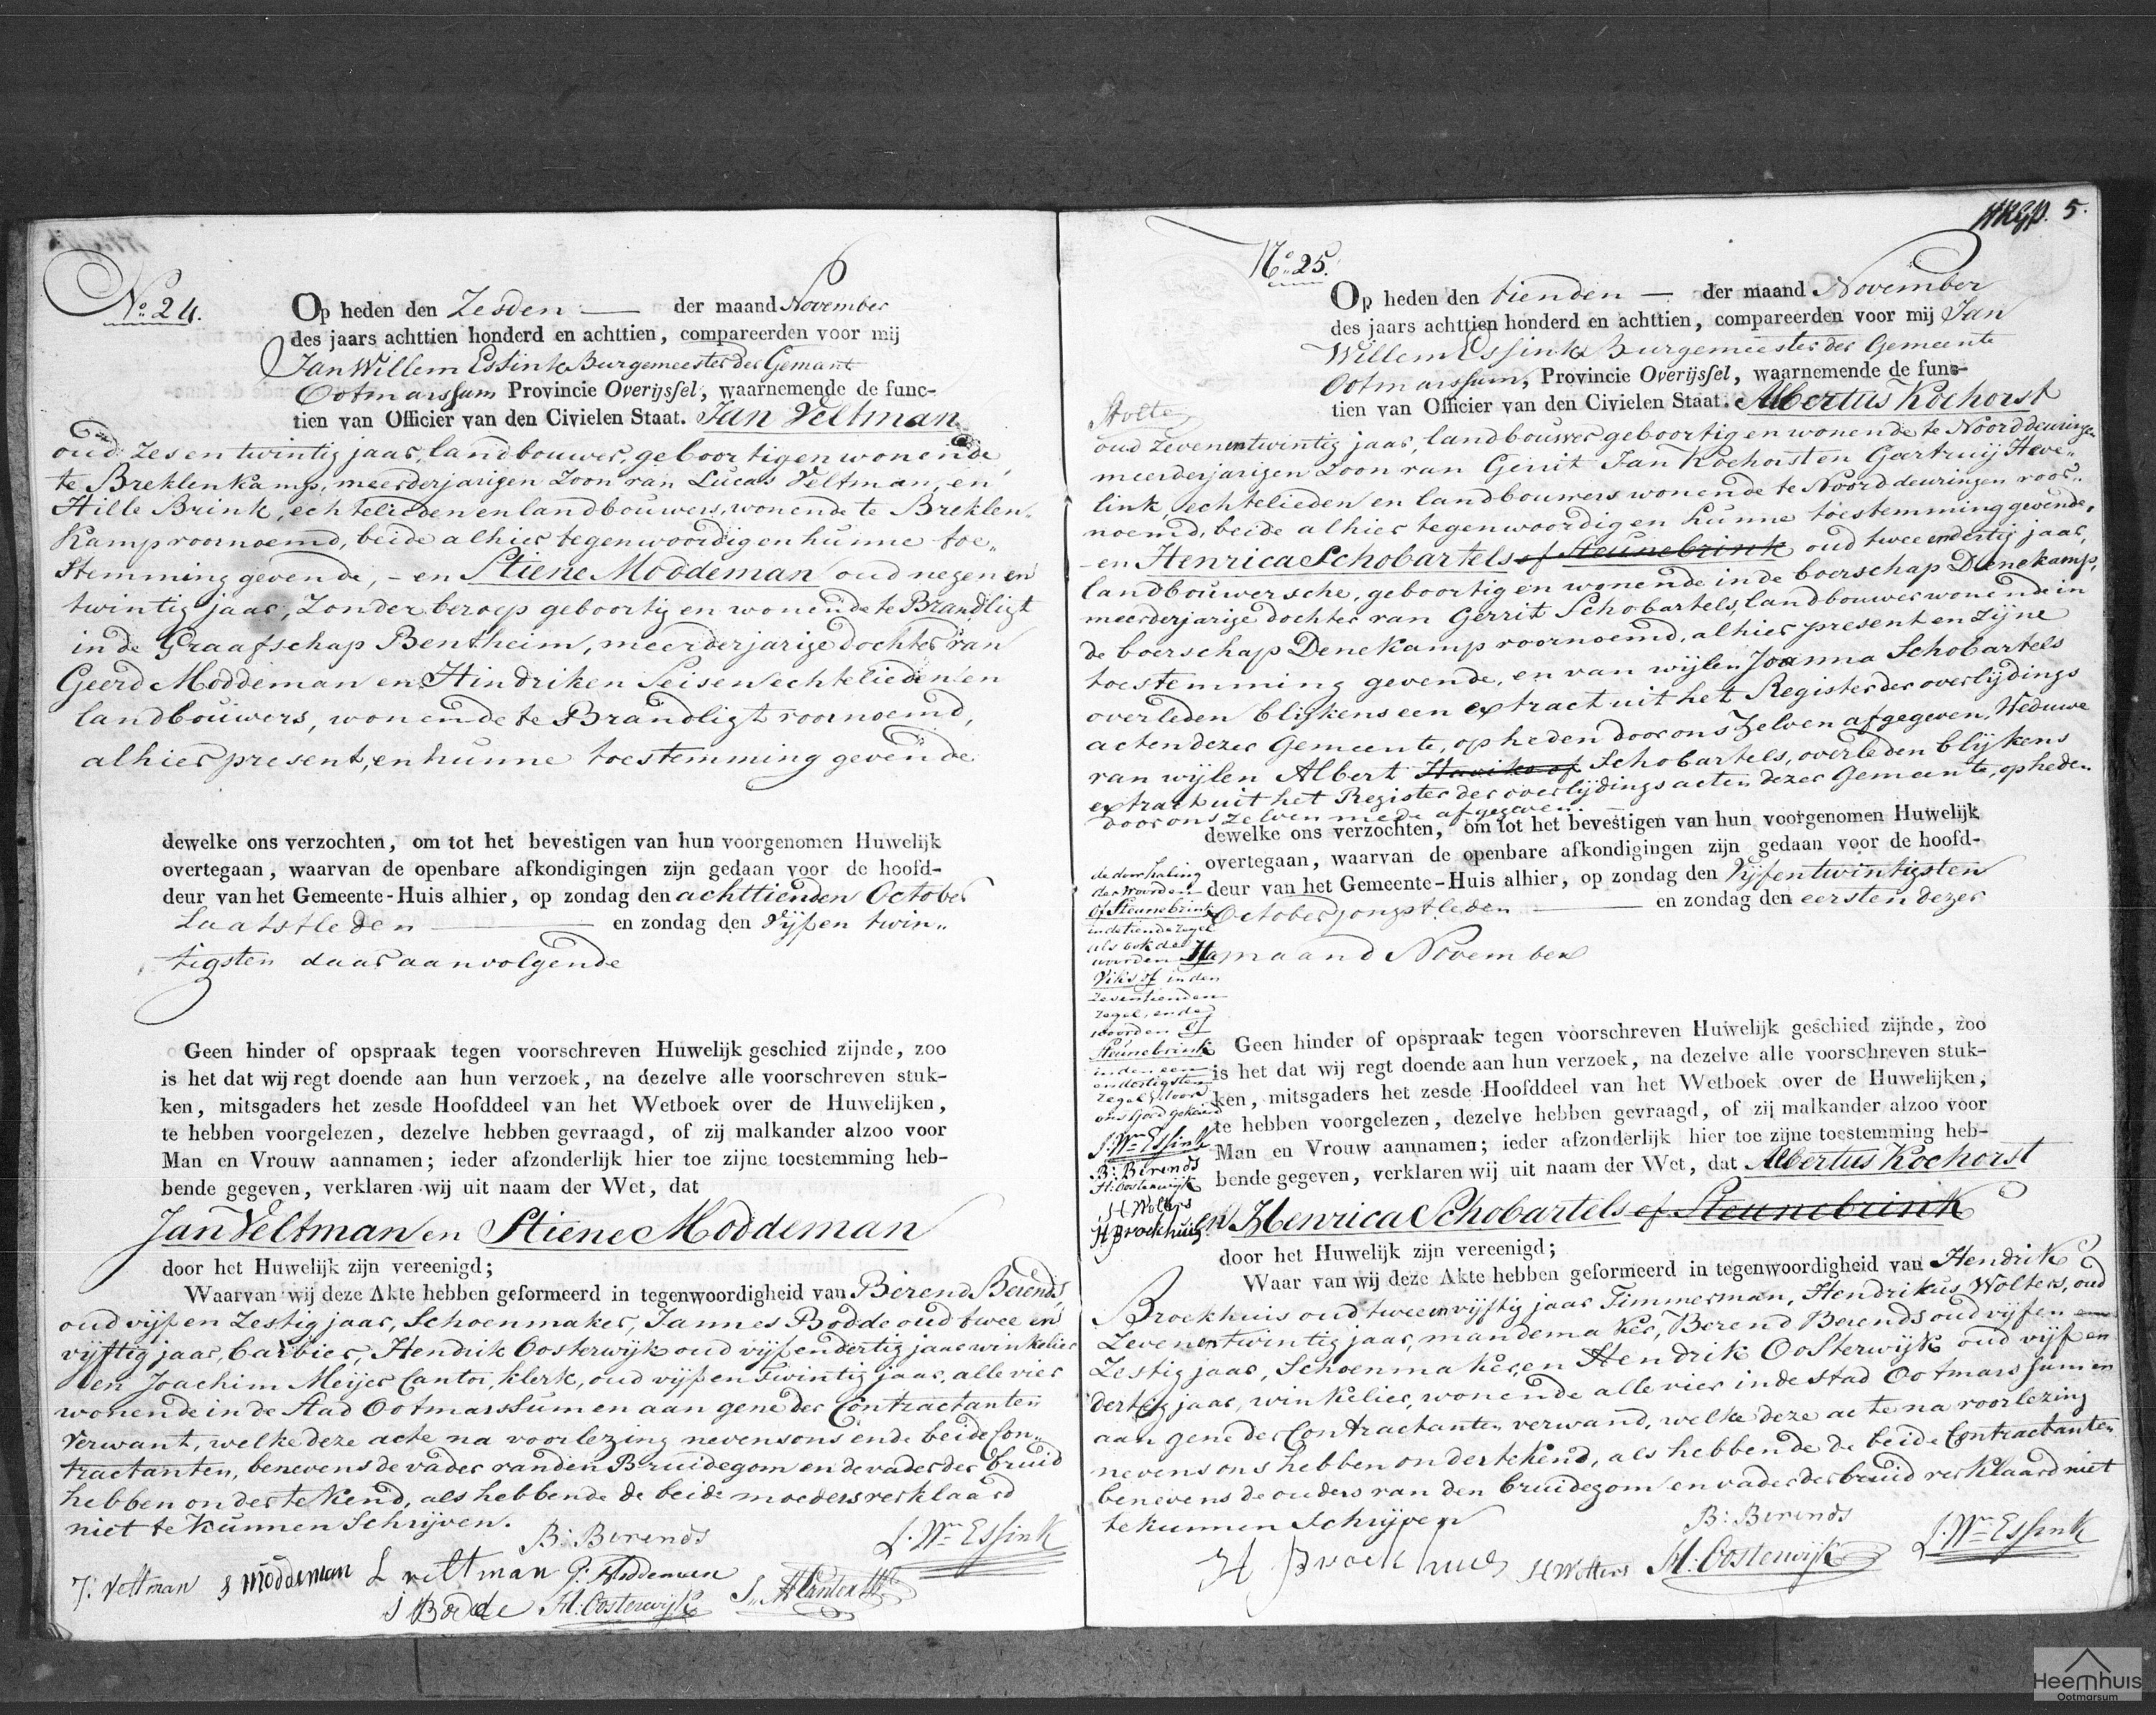 No. 24.
Op heden den Zesden — der maand November
des jaars achttien honderd en achttien, compareerden voor mij
Jan Willem Essink Burgemeester der Gemeente
Ootmarssum Provincie Overijssel, waarnemende de func-
tien van Officier van den Civielen Staat. Jan Veltman
oud Zes en twintig jaar, landbouwer, geboortig en wonende
te Breklenkamp, meerderjarigen Zoon van Lucas Veltman, en
Hille Brink, echtelieden en landbouwers, wonende te Breklen-
Kamp voornoemd, beide alhier tegenwoordig en hunne toe-
Stemming gevende, - en Stiene Moddeman oud negen en
twintig jaar, Zonder beroep geboortig en wonende te Brandligt
in de Graafschap Bentheim, meerderjarige dochter van
Geerd Moddeman en Hindriken Seisen echtelieden en
landbouwers, wonende te Brandligt voornoemd,
alhier present, en hunne toestemming gevende
dewelke ons verzochten, om tot het bevestigen van hun voorgenomen Huwelijk
overtegaan, waarvan de openbare afkondigingen zijn gedaan voor de hoofd-
deur van het Gemeente-Huis alhier, op zondag den achttienden October
Laatstleden — en zondag den Vijf en twin-
tigsten daar aanvolgende
Geen hinder of opspraak tegen voorschreven Huwelijk geschied zijnde, zoo
is het dat wij regt doende aan hun verzoek, na dezelve alle voorschreven stuk-
ken, mitsgaders het zesde Hoofddeel van het Wetboek over de Huwelijken,
te hebben voorgelezen, dezelve hebben gevraagd, of zij malkander alzoo voor
Man en Vrouw aannamen; ieder afzonderlijk hier toe zijne toestemming heb-
bende gegeven, verklaren wij uit naam der Wet, dat
Jan Veltman en Stiene Moddeman
door het Huwelijk zijn vereenigd;
Waarvan wij deze Akte hebben geformeerd in tegenwoordigheid van Berend Berends,
oud vijf en Zestig jaar, Schoenmaker, Jannes Bodde oud twee en
vijftig jaar, barbier, Hendrik Oosterwijk oud vijf en dertig jaar winkelier
en Joachim Meijer Cantor, klerk, oud vijf en twintig jaar, alle vier
wonende in de Stad Ootmarssum en aan gene der Contractanten
Verwant, welke deze acte na voorlezing nevens ons en de beide Con-
tractanten, benevens de vader van den Bruidegom en de vader der bruid
hebben ondertekend, als hebbende de beide moeders verklaard
niet te kunnen Schrijven.
B: Berends
J. Wm Essink
J: Veltman S moddeman L veltman G: Moddeman
J Bodde H. Oosterwijk
5.
No. 25.
Op heden den tienden — der maand November
des jaars achttien honderd en achttien, compareerden voor mij Jan
Willem Essink Burgemeester der Gemeente
Ootmarssum, Provincie Overijssel, waarnemende de func-
tien van Officier van den Civielen Staat. Albertus Kochorst
oud Zeven en twintig jaar, landbouwer geboortig en wonende te Noorddeuringen
meerderjarigen Zoon van Gerrit Jan Kochorst en Gartruij Heve-
link echtelieden en landbouwers wonende te Noorddeuringen voor-
noemd, beide alhier tegenwoordig en hunne toestemming gevende,
- en Henrica Schobartels of Steunebrink oud twee en dertig jaar,
landbouwersche, geboortig en wonende in de boerschap Denekamp,
meerderjarige dochter van Gerrit Schobartels, landbouwer wonende in
de boerschap Denekamp voornoemd, alhier present en zijne
toestemming gevende, en van wijlen Joanna Schobartels
overleden blijkens een extract uit het Register der overlijdings
acten dezer Gemeente, op heden door ons Zelven afgegeven, Weduwe
van wijlen Albert Haviks of Schobartels, overleden blijkens
extract uit het Register der overlijdings acten dezer Gemeente, op heden
door ons zelven mede afgegeven.
dewelke ons verzochten, om tot het bevestigen van hun voorgenomen Huwelijk
overtegaan, waarvan de openbare afkondigingen zijn gedaan voor de hoofd-
deur van het Gemeente-Huis alhier, op zondag den Vijfentwintigsten
October jongstleden — en zondag den eersten dezer
maand November
de doorhaling
der woorden
of Steunebrink
in de tiende regel
als ook der
woorden Ha
viks of in den
zeventienden
regel, en de
woorden of
Steunebrink
in den een
en dertigsten
regel door
ons goedgekeurd
J. Wm Essink
B: Berends
H: Oosterwijk
H Wolters
H Brockhuis
Geen hinder of opspraak tegen voorschreven Huwelijk geschied zijnde, zoo
is het dat wij regt doende aan hun verzoek, na dezelve alle voorschreven stuk-
ken, mitsgaders het zesde Hoofddeel van het Wetboek over de Huwelijken,
te hebben voorgelezen, dezelve hebben gevraagd, of zij malkander alzoo voor
Man en Vrouw aannamen; ieder afzonderlijk hier toe zijne toestemming heb-
bende gegeven, verklaren wij uit naam der Wet, dat Albertus Kochorst
en Henrica Schobartels of Steunebrink
door het Huwelijk zijn vereenigd;
Waar van wij deze Akte hebben geformeerd in tegenwoordigheid van Hendrik
Brockhuis oud twee en vijftig jaar Timmerman, Hendrikus Wolters, oud
Zeven en twintig jaar, mandemaker, Berend Berends oud vijf en
Zestig jaar, Schoenmaker, en Hendrik Oosterwijk oud vijf en
dertig jaar, winkelier, wonende alle vier in de Stad Ootmarssum en
aan gene der Contractanten verwand, welke deze acte na voorlezing
nevens ons hebben ondertekend, als hebbende de beide Contractanten
benevens de ouders van den bruidegom en vader der bruid verklaard niet
te kunnen Schrijven
B: Berends
H Brockhues H Wolters H. Oosterwijk J. Wm Essink
Heemhuis
Ootmarsum